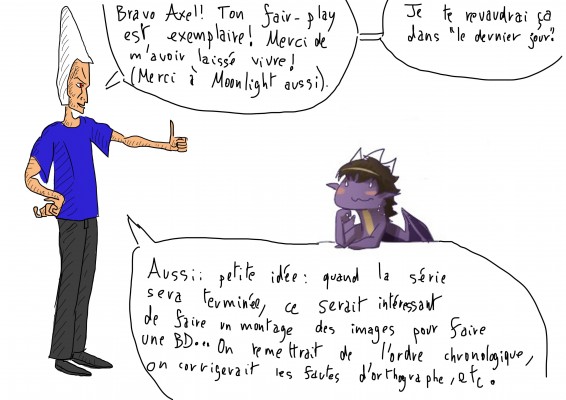 Bravo Axel! Ton fair-play
est exemplaire! Merci de
m'avoir laissé vivre!
(Merci à Moonlight aussi).
Je te revaudrai ça
dans "le dernier jour".
Aussi: petite idée: quand la série
sera terminée, ce serait intéressant
de faire un montage des images pour faire
une BD... On remettrait de l'ordre chronologique,
on corrigerait les fautes d'orthographe, etc.